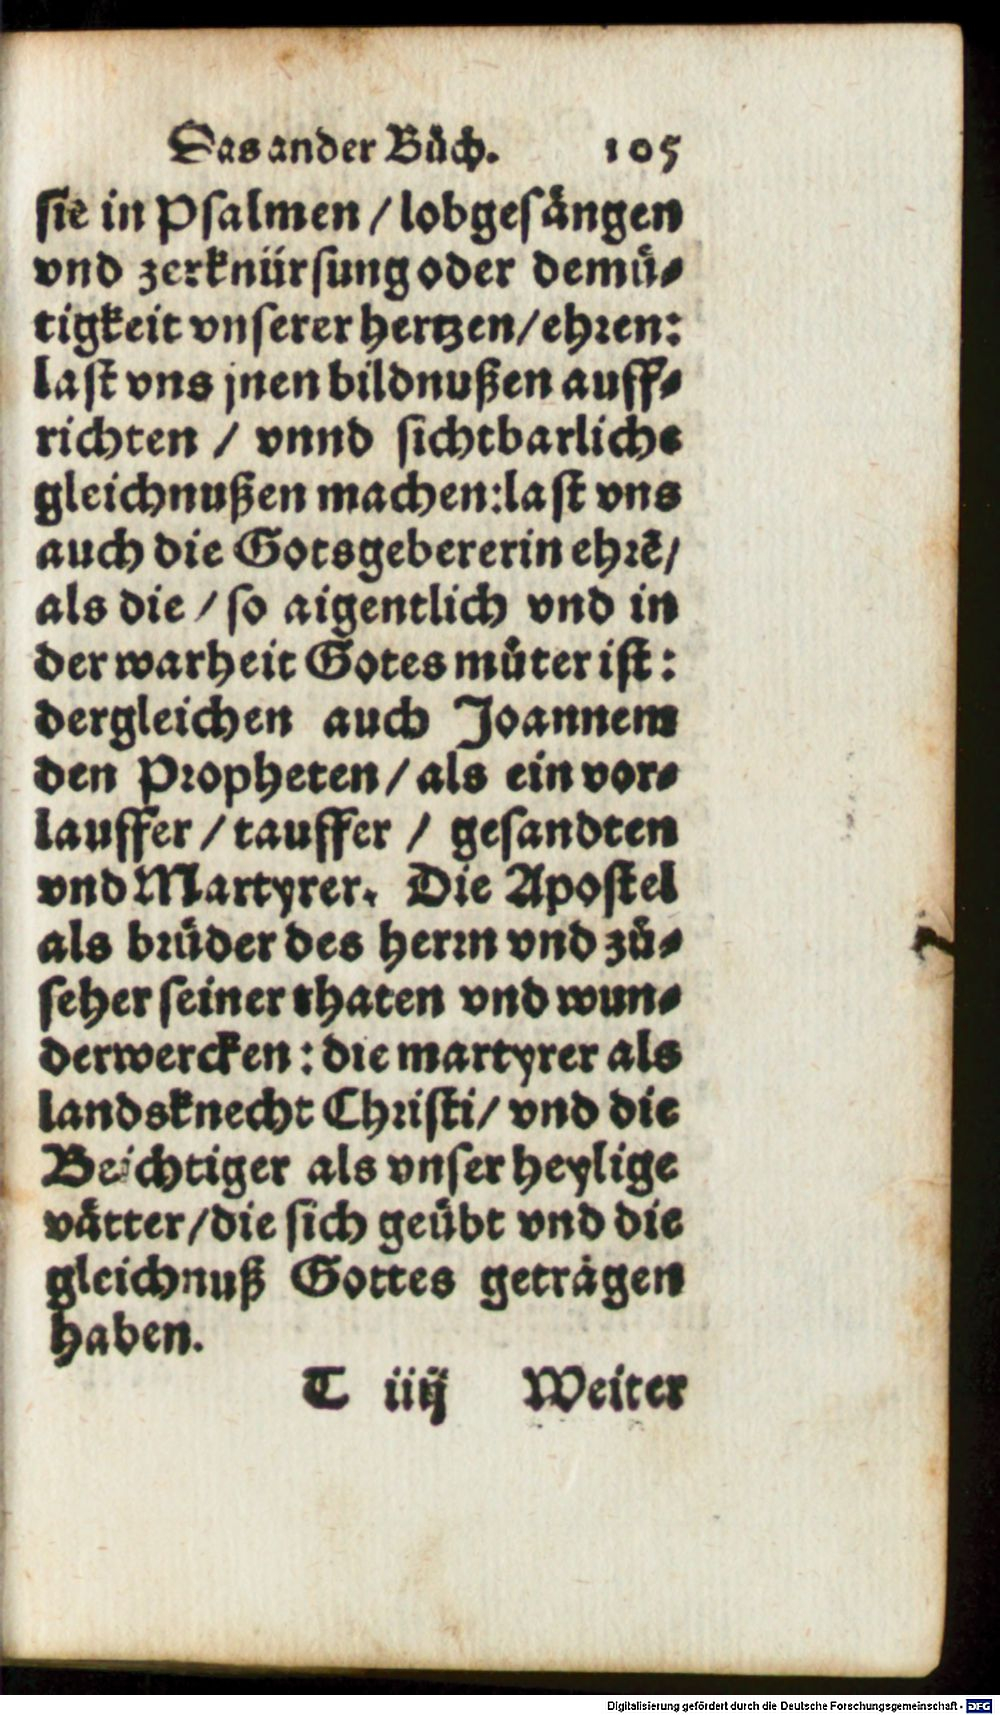 Das ander Bůch. 105
sie in Psalmen / lobgesängen
vnd zerknürsung oder demü⸗
tigkeit vnserer hertzen / ehren:
last vns jnen bildnußen auff⸗
richten / vnnd sichtbarliche
gleichnußen machen: last vns
auch die Gotsgebererin ehrē /
als die / so aigentlich vnd in
der warheit Gotes můter ist:
dergleichen auch Joannem
den Propheten / als ein vor⸗
lauffer / tauffer / gesandten
vnd Martyrer. Die Apostel
als brüder des herrn vnd zů⸗
seher seiner thaten vnd wun⸗
derwercken: die martyrer als
landsknecht Christi / vnd die
Beichtiger als vnser heylige
vätter / die sich geübt vnd die
gleichnuß Gottes geträgen
haben.
T iiij Weiter
Digitalisierung gefördert durch die Deutsche Forschungsgemeinschaft - DFG